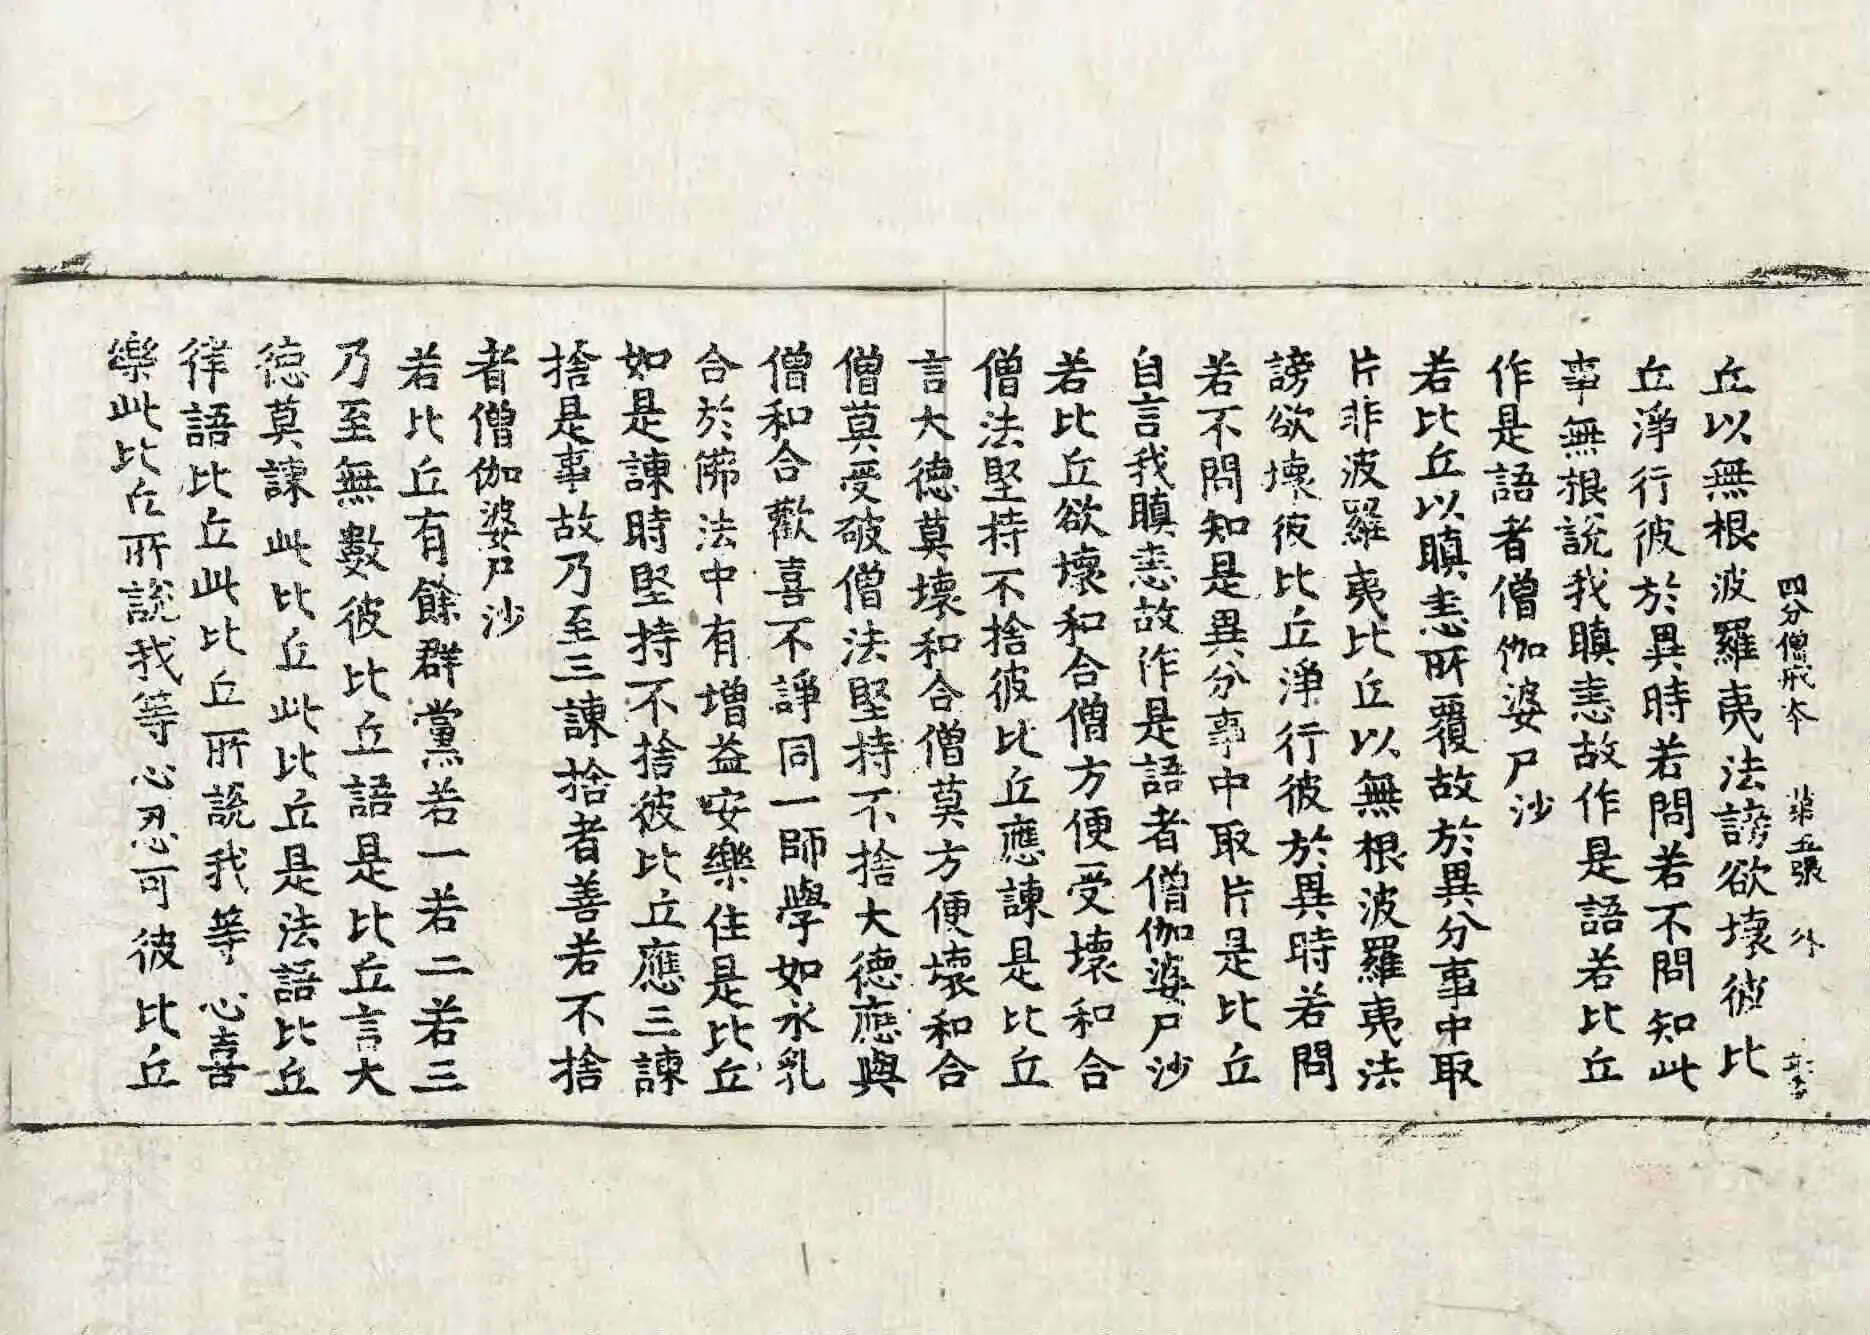 四分僧戒本 第五張 外
丘以無根波羅夷法謗欲壞彼比
丘淨行彼於異時若問若不問知此
事無根說我瞋恚故作是語若比丘
作是語者僧伽婆尸沙
若比丘以瞋恚所覆故於異分事中取
片非波羅夷比丘以無根波羅夷法
謗欲壞彼比丘淨行彼於異時若問
若不問知是異分事中取片是比丘
自言我瞋恚故作是語者僧伽婆尸沙
若比丘欲壞和合僧方便受壞和合
僧法堅持不捨彼比丘應諫是比丘
言大德莫壞和合僧莫方便壞和合
僧莫受破僧法堅持不捨大德應與
僧和合歡喜不諍同一師學如永乳
合於佛法中有增益安樂住是比丘
如是諫時堅持不捨彼比丘應三諫
捨是事故乃至三諫捨者善若不捨
者僧伽婆尸沙
若比丘有餘群黨若一若二若三
乃至無數彼比丘語是比丘言大
德莫諫此比丘此比丘是法語比丘
律語比丘此比丘所說我等心喜
樂此比丘所說我等心忍可彼比丘